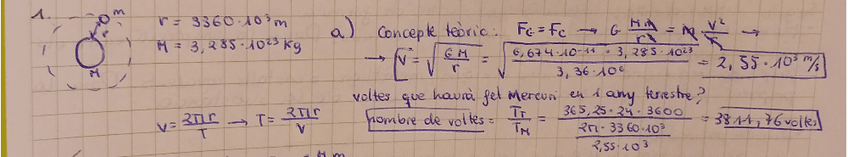 1. m r = 3360·10³ m a) Concepte teòric: F_G = F_C → G Mm/r² = m v²/r →
r M = 3,285·10²³ kg → v = √(GM/r) = √(6,674·10⁻¹¹ · 3,285·10²³ / 3,36·10⁶) = 2,55·10³ m/s
M
voltes que haurà fet Mercuri en 1 any terrestre?
v = 2πr/T → T = 2πr/v nombre de voltes = T_T/T_M = 365,25·24·3600 / (2π·3360·10³ / 2,55·10³) = 3811,76 voltes